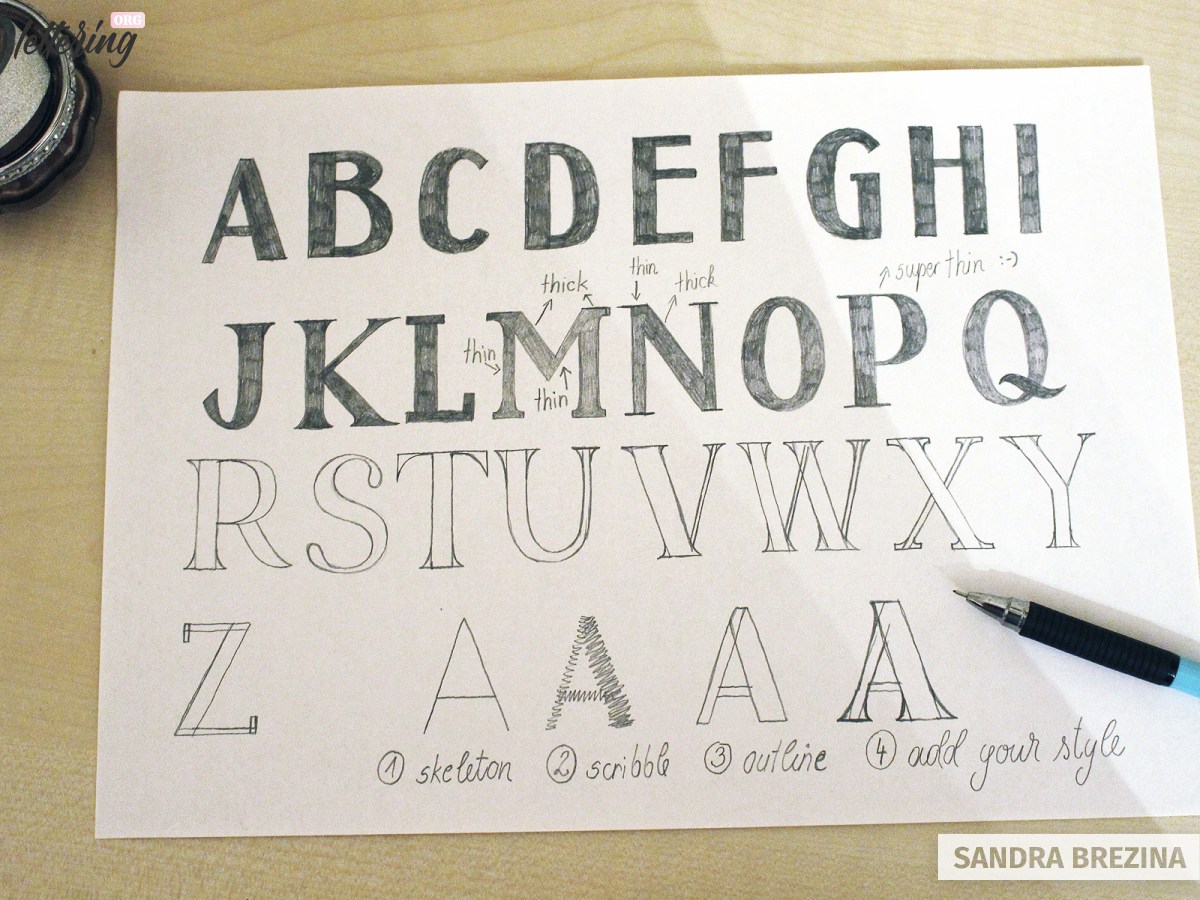 lettering ORG
ABCDEFGHI
super thin :-)
thick thin thick
JKLMNOPQ
thin
thin
RSTUVWXY
Z A A A A
1 skeleton 2 scribble 3 outline 4 add your style
SANDRA BREZINA